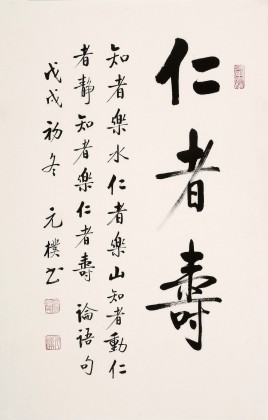 仁者壽
知者樂水仁者樂山知者動仁
者靜知者樂仁者壽 論語句
戊戌初冬 元樸书